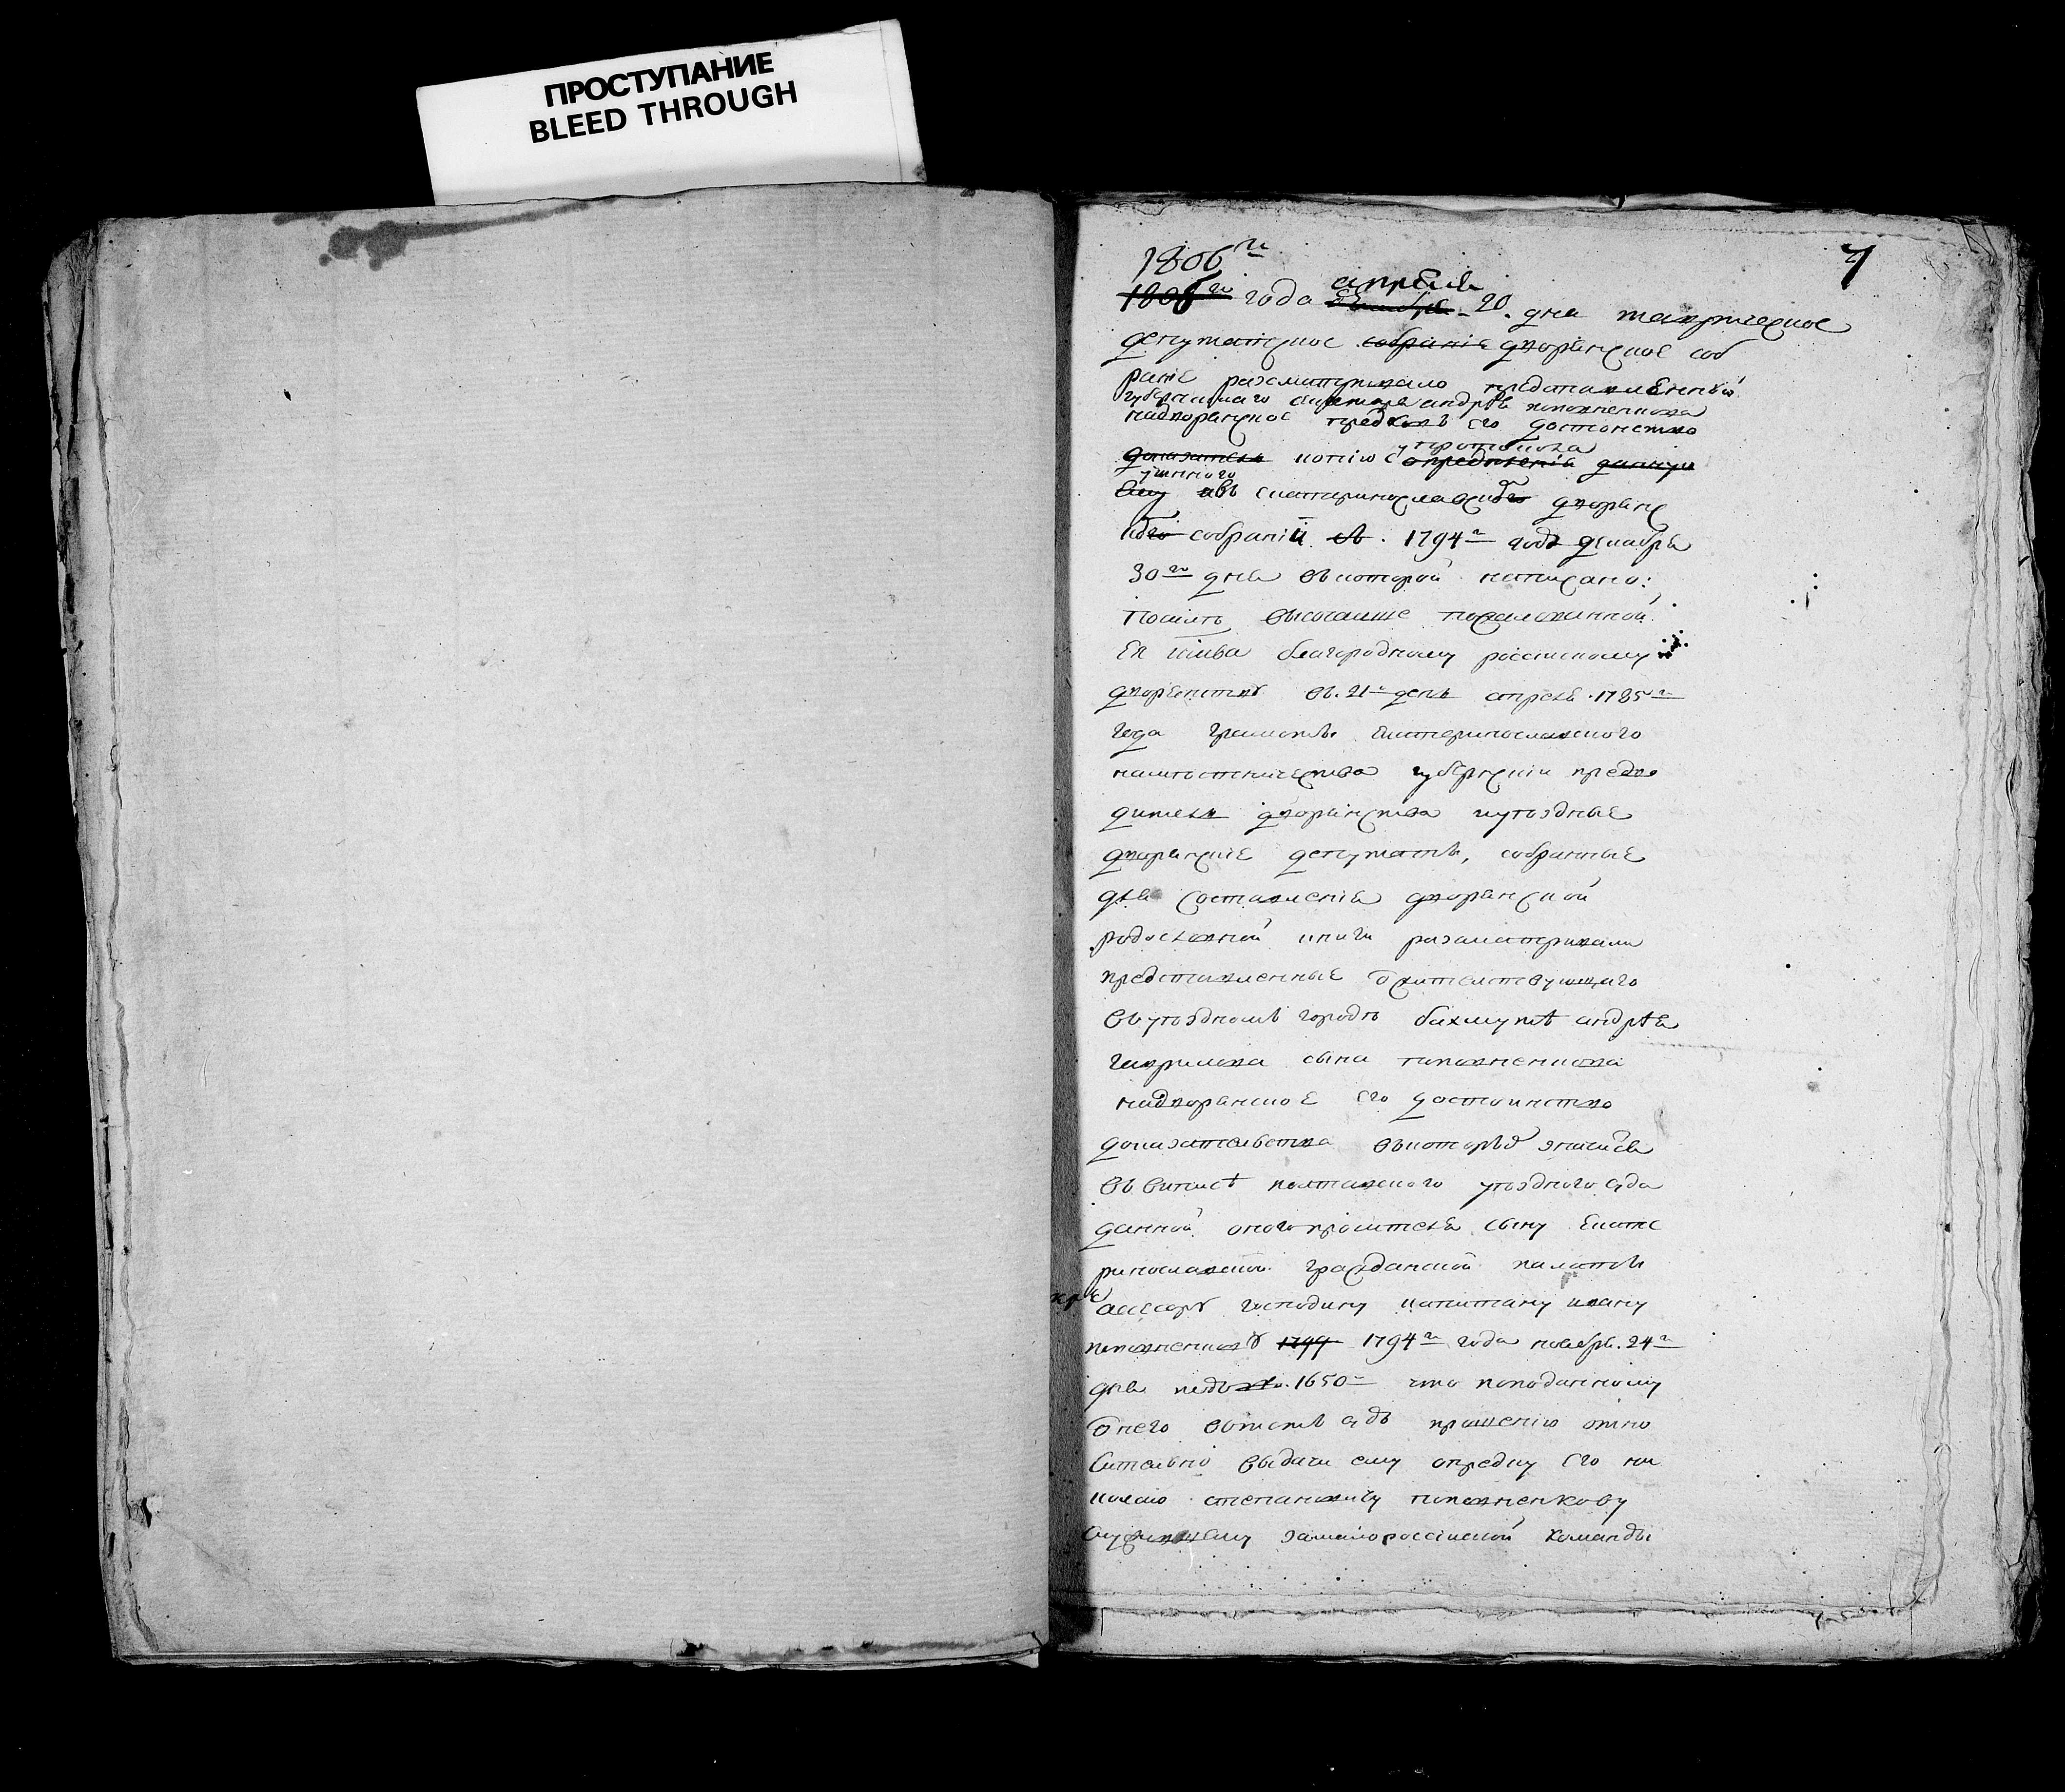 ПРОСТУПАНИЕ
BLEED THROUGH
7
1806го
1806го года апреля 20. дня таврическое
депутатское собрание дворянское соб
рание разсматривало представленныя
губернскаго секретаря андрея поповненкова
на дворянское предковъ его достоинство
копию с протокола
въ екатеринославско дворянс
ко собрании 1794го года декабря
30го дня в которой написано:
По силъ высочайше пожалованной
Ея имва благородному российскому
дворянству въ. 21й день апреля. 1785го
года грамоты Екатеринославского
наместничества губернский предво
дитель дворянства и уездные
дворянские депутаты, собранные
для составления дворянской
родословной книги разсматривали
представленные жительствующаго
въ уездномъ городе бахмуте андрея
гаврилова сына поповненкова
на дворянское его достоинство
доказательства в которых значится
въ выписе полтавского уездного суда
данной оного просителя сыну Екате
ринославской гражданской палаты
асессору господину капитану ивану
поповненкову 1794го года ноября. 24го
дня под №. 1650м что по поданному
от него в тотъ судъ прошению отно
сительно выдачи ему о предку его ни
колаю степановичу поповненкову
служившему за малороссийской команды